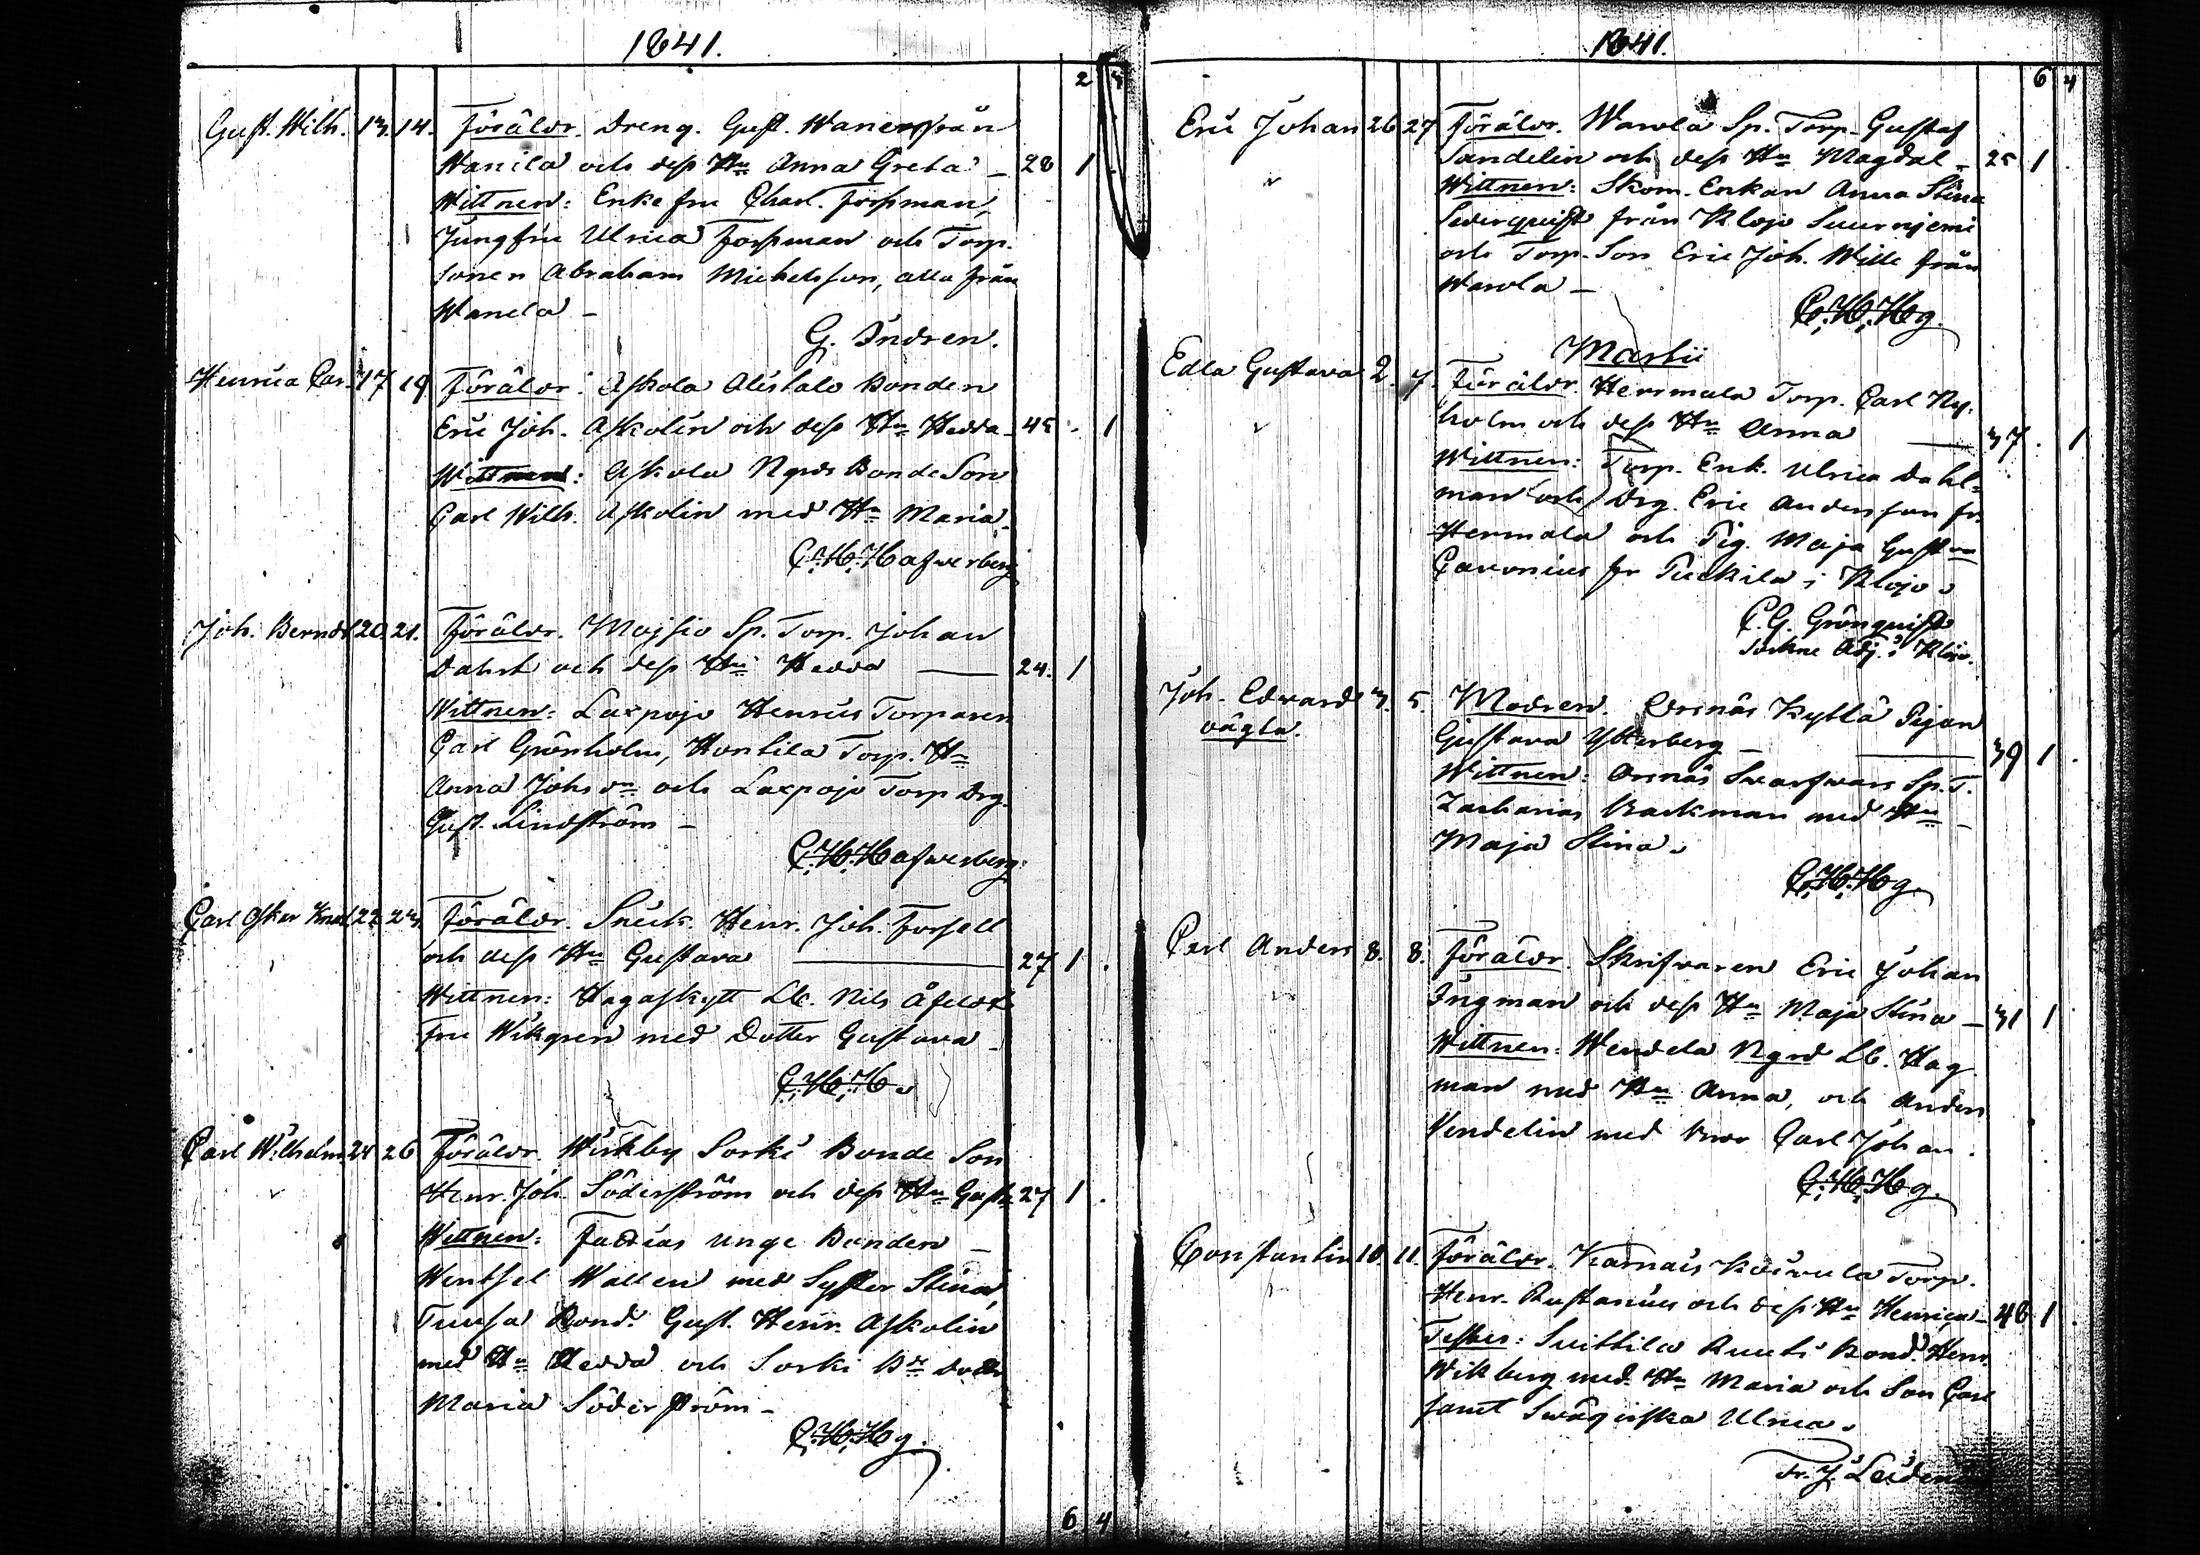 1841.
2 3
Gust. Wilh. 13. 14. Föräldr. Dreng. Gust. Waner från
Wanila och dess Hu Anna Greta 28 1
Wittnen: Enke fru Charl. Forssman,
Jungfru Ulrica Forssman och Torp.
sonen Abraham Michelsson, alla från
Wanela
G. Indren.
Henrica Car. 17 19 Föräldr: Askola Alistalo Bonden
Eric Joh. Askolin och dess Hu Hedda 45 1
Wittnen: Askola Ngrds BondeSon
Carl Wilh. Askolin med Hu Maria.
C.H.Hafverberg
Joh. Berndt 20. 21. Föräldr. Mojsio Sp. Torp. Johan
Dahst och dess Hu Hedda 24. 1
Wittnen: Laxpojo Henrics Torparen
Carl Grönholm, Hontila Torp. Hu
Anna Johsdr och Laxpojo Torp Drg.
Gust. Lindström
C.H.Hafverberg.
Carl Oskar Knut 22 23. Föräldr. Snick. Henr. Joh. Forsell
och dess Hu Gustava 27 1
Wittnen: Hagaskytt Lb. Nils Åfeldt
Fru Wikgren med Dotter Gustava
C.H.H.
Carl Wilhelm 24 26 Föräldr. Wirkby Sorki Bonde Son
Henr. Joh. Söderström och dess Hu Gusta 27 1
Wittnen: unge Bonden
Wentsel Wallen med Syster Stina,
Tuusa Bond. Gust. Henr. Askolin
med Hu Hedda och Sorki Bde Dotter
Maria Söderström
C.H.Hg.
6 4
1841.
6 4
Eric Johan 26 27 Föräldr. Warola Sp. Torp. Gustaf
Sandelin och dess Hu Magdal 25 1
Wittnen: Skom. Enkan Anna Stina
Sederquist från Klojo Suurnjemi
och Torp. Son Eric Joh. Wille från
Warola
C.H.Hg.
Martii
Edla Gustava 2. 7. Föräldr. Herrmala Torp. Carl Ny-
holm och dess Hu Anna 37. 1
Wittnen: Torp. Enk. Ulrica Dahl-
man och Drg. Eric Andersson fr.
Hermala och Pig. Maja Gustava
fr Puckila i Klojo
C. G. Grönquist
Sockne Adj. i Klojo.
Joh. Edvard 3. 5. Modren. Orsnäs Kyttä Pigan
oägta. Gustava Ytterberg 39 1
Wittnen: Orsnäs Swarfwars Sp. T.
Zacharias Backman med Hu
Maja Stina.
C.H.Hg.
Carl Anders 8. 8. Föräldr. Skrifvaren Eric Johan
Ingman och dess Hu Maja Stina 31 1
Wittnen: Wendela Ngrd Lb. Hag
man med Hu Anna, och Anders
Vendelin med Carl Johan.
C.H.Hg.
Constantin 10. 11. Föräldr. Karnais Koivula Torp.
Henr. och dess Hu Henrica 48 1
Testes: Suittila Ruuti Bond. Henr.
Wikberg med Hu Maria och Son Carl
samt Swägerska Ulrica.
Fr. J. Leiden